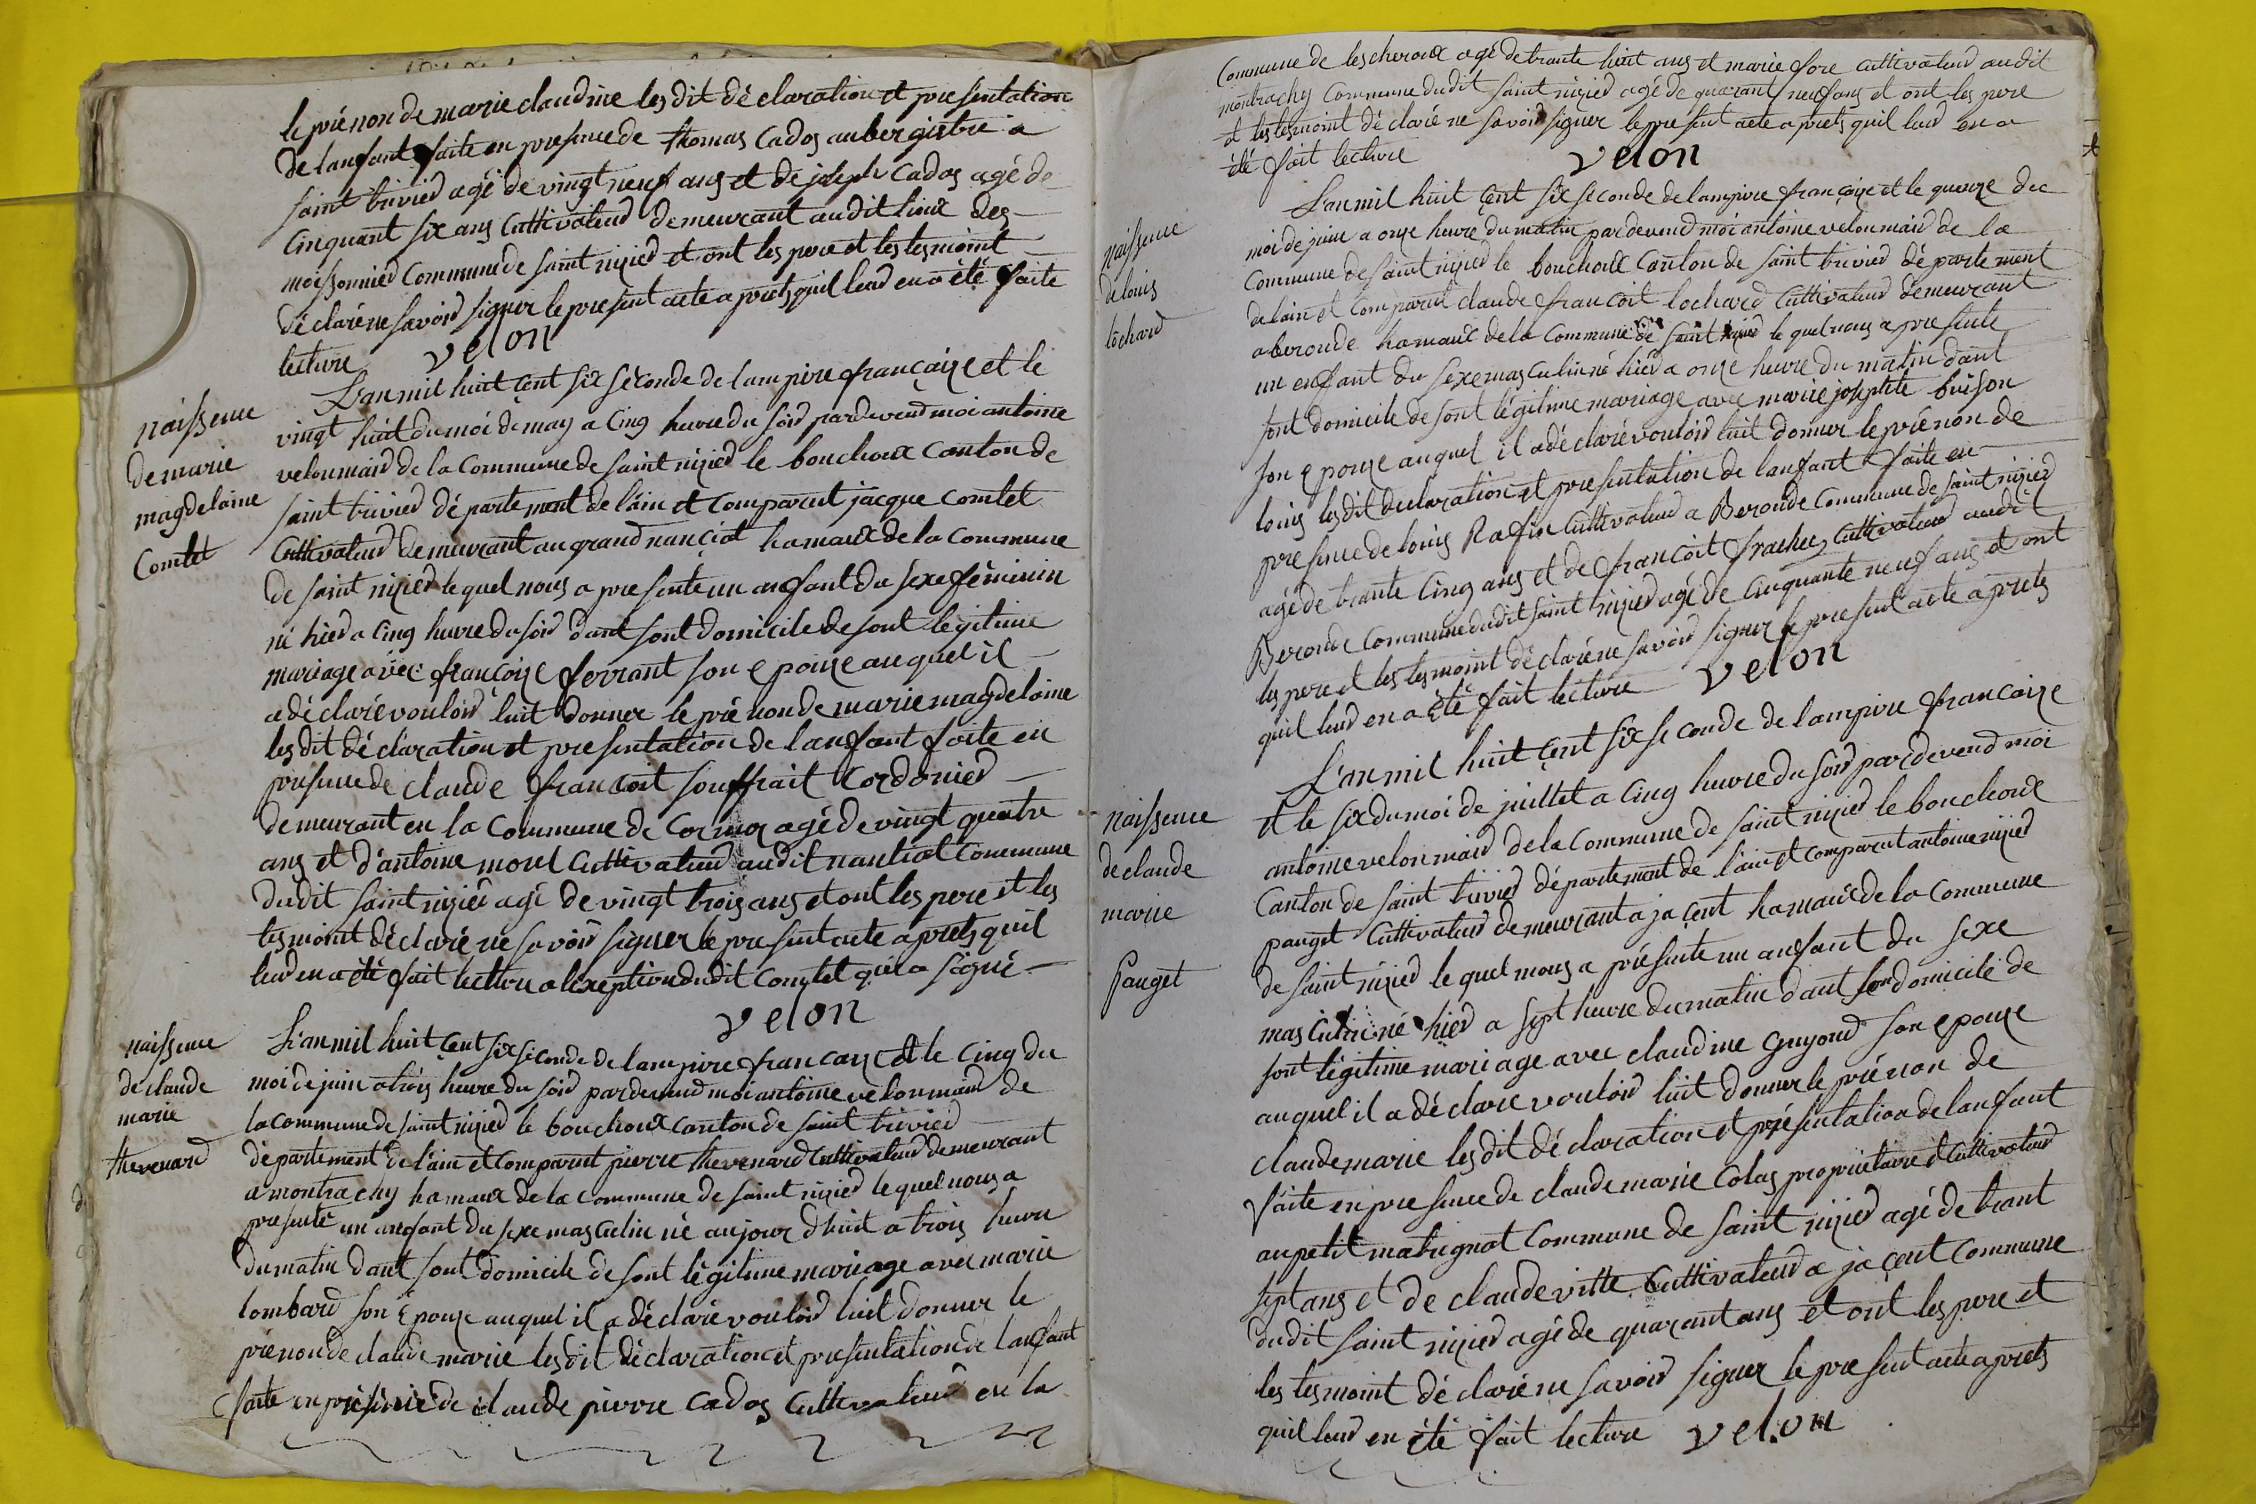 le prénon de marie claudine les dit déclaration et presentation
de lanfant faite en presence de thomas Cados aubergistre a
saint trivier agé de vingt neuf ans et de joseph Cados agé de
cinquant six ans Cultivateur demeurant audit lieux des
moissonnier Commune de saint nizier et ont les pere et les tesmoint
déclaré ne savoir signer le present acte aprets quil leur en a été faite
lecture velon
naissence
de marie
magdelaine
Comtet
L'an mil huit cent six séconde de lampire françaize et le
vingt huit du moi de may a cinq heure du soir pardevend moi antoine
velon maire de la Commune de saint nizier le bouchoux canton de
saint trivier département de l'ain et comparut jacque comtet
Cultivateur demeurant au grand nanciat hamaux de la commune
de saint nizier le quel nous a presente un anfant du sexe féminin
né hier a cinq heure du soir dant sont domicile de sont légitime
mariage avec françoize ferrant son epouze auquel il
a déclaré vouloir luit donner le prénon de marie magdelaine
les dit déclaration et presentation de lanfant faite en
presence de claude francoit souffrait cordonier
demeurant en la Commune de Cormoz agé de vingt quatre
ans et d'antoine morel Cultivateur audit nantiat Commune
dudit saint nizier agé de vingt trois ans et ont les pere et les
tesmoint déclaré ne savoir signer le present acte aprets quil
leur en a été fait lecture a lexeption dudit Comtet qui a signé
velon
naissence
de claude
marie
thevenard
L'an mil huit cent six seconde de lampire francaize et le cinq du
moi de juin a trois heure du soir pardevend moi antoine velon maire de
la commune de saint nizier le bouchoux canton de saint trivier
département de l'ain et comparut pierre thevenard Cultivateur demeurant
a montrachy hamaux de la commune de saint nizier le quel nous a
presenté un anfant du sexe masculin né aujour dhuit a trois heure
du matin dant sont domicile de sont légitime mariage avec marie
lombard son épouze auquel il a déclaré vouloir luit donner le
prénon de claude marie les dit déclaration et presentation de lanfant
faite en présence de claude pierre Cados Cultivateur en la
Commune de lescheroux agé de trante huit ans et marie fore cultivateur audit
montrachy Commune dudit saint nizier agé de quarant neuf ans et ont les pere
et les tesmoint déclaré ne savoir signer le present acte aprets quil leur en a
été fait lecture velon
naissence
de louis
lochard
L'an mil huit cent six séconde de lampire françaize et le quenze du
moi de juin a onze heure du matin pardevend moi antoine velon maire de la
Commune de saint nizier le bouchoux canton de saint trivier département
de lain et comparut claude francoit lochard cultivateur demeurant
a beronde hamaux de la Commune de saint nizier le quel nous a presente
un enfant du sexe masculin né hier a onze heure du matin dant
sont domicile de sont légitime mariage avec marie josephte buison
son epouze auquel il a déclaré vouloir luit donner le prénon de
louis les dit declaration et presentation de lanfant faite en
presence de louis Rafin Cultivateur a Beronde Commune de saint nizier
agé de trante cinq ans et de francoit frachez Cultivateur audit
Beronde Commune dudit saint nizier agé de cinquante neuf ans et ont
les pere et les tesmoint déclaré ne savoir signer le present acte aprets
quil leur en a été fait lecture velon
naissence
de claude
marie
Pauget
L'an mil huit cent six seconde de lampire francaize
et le six du moi de juillet a cinq heure du soir pardevend moi
antoine velon maire de la Commune de saint nizier le bouchoux
Canton de saint trivier département de l'ain et comparut antoine nizier
pauget Cultivateur demeurant a jacent hamaux de la commune
de saint nizier le quel nous a présente un anfant du sexe
masculin né hier a sept heure du matin dant son domicile de
sont légitime mariage avec claudine guyond son epouze
auquel il a déclaré vouloir luit donner le prénon de
claude marie les dit déclaration et présentation de lanfant
faite en presence de claude marie Colas propriétaire et Cultivateur
au petit matrignat Commune de saint nizier agé de trant
sept ans et de claude vitte Cultivateur a jacent commune
dudit saint nizier agé de quarant ans et ont les pere et
les tesmoint déclaré ne savoir signer le present acte aprets
quil leur en été fait lecture velon